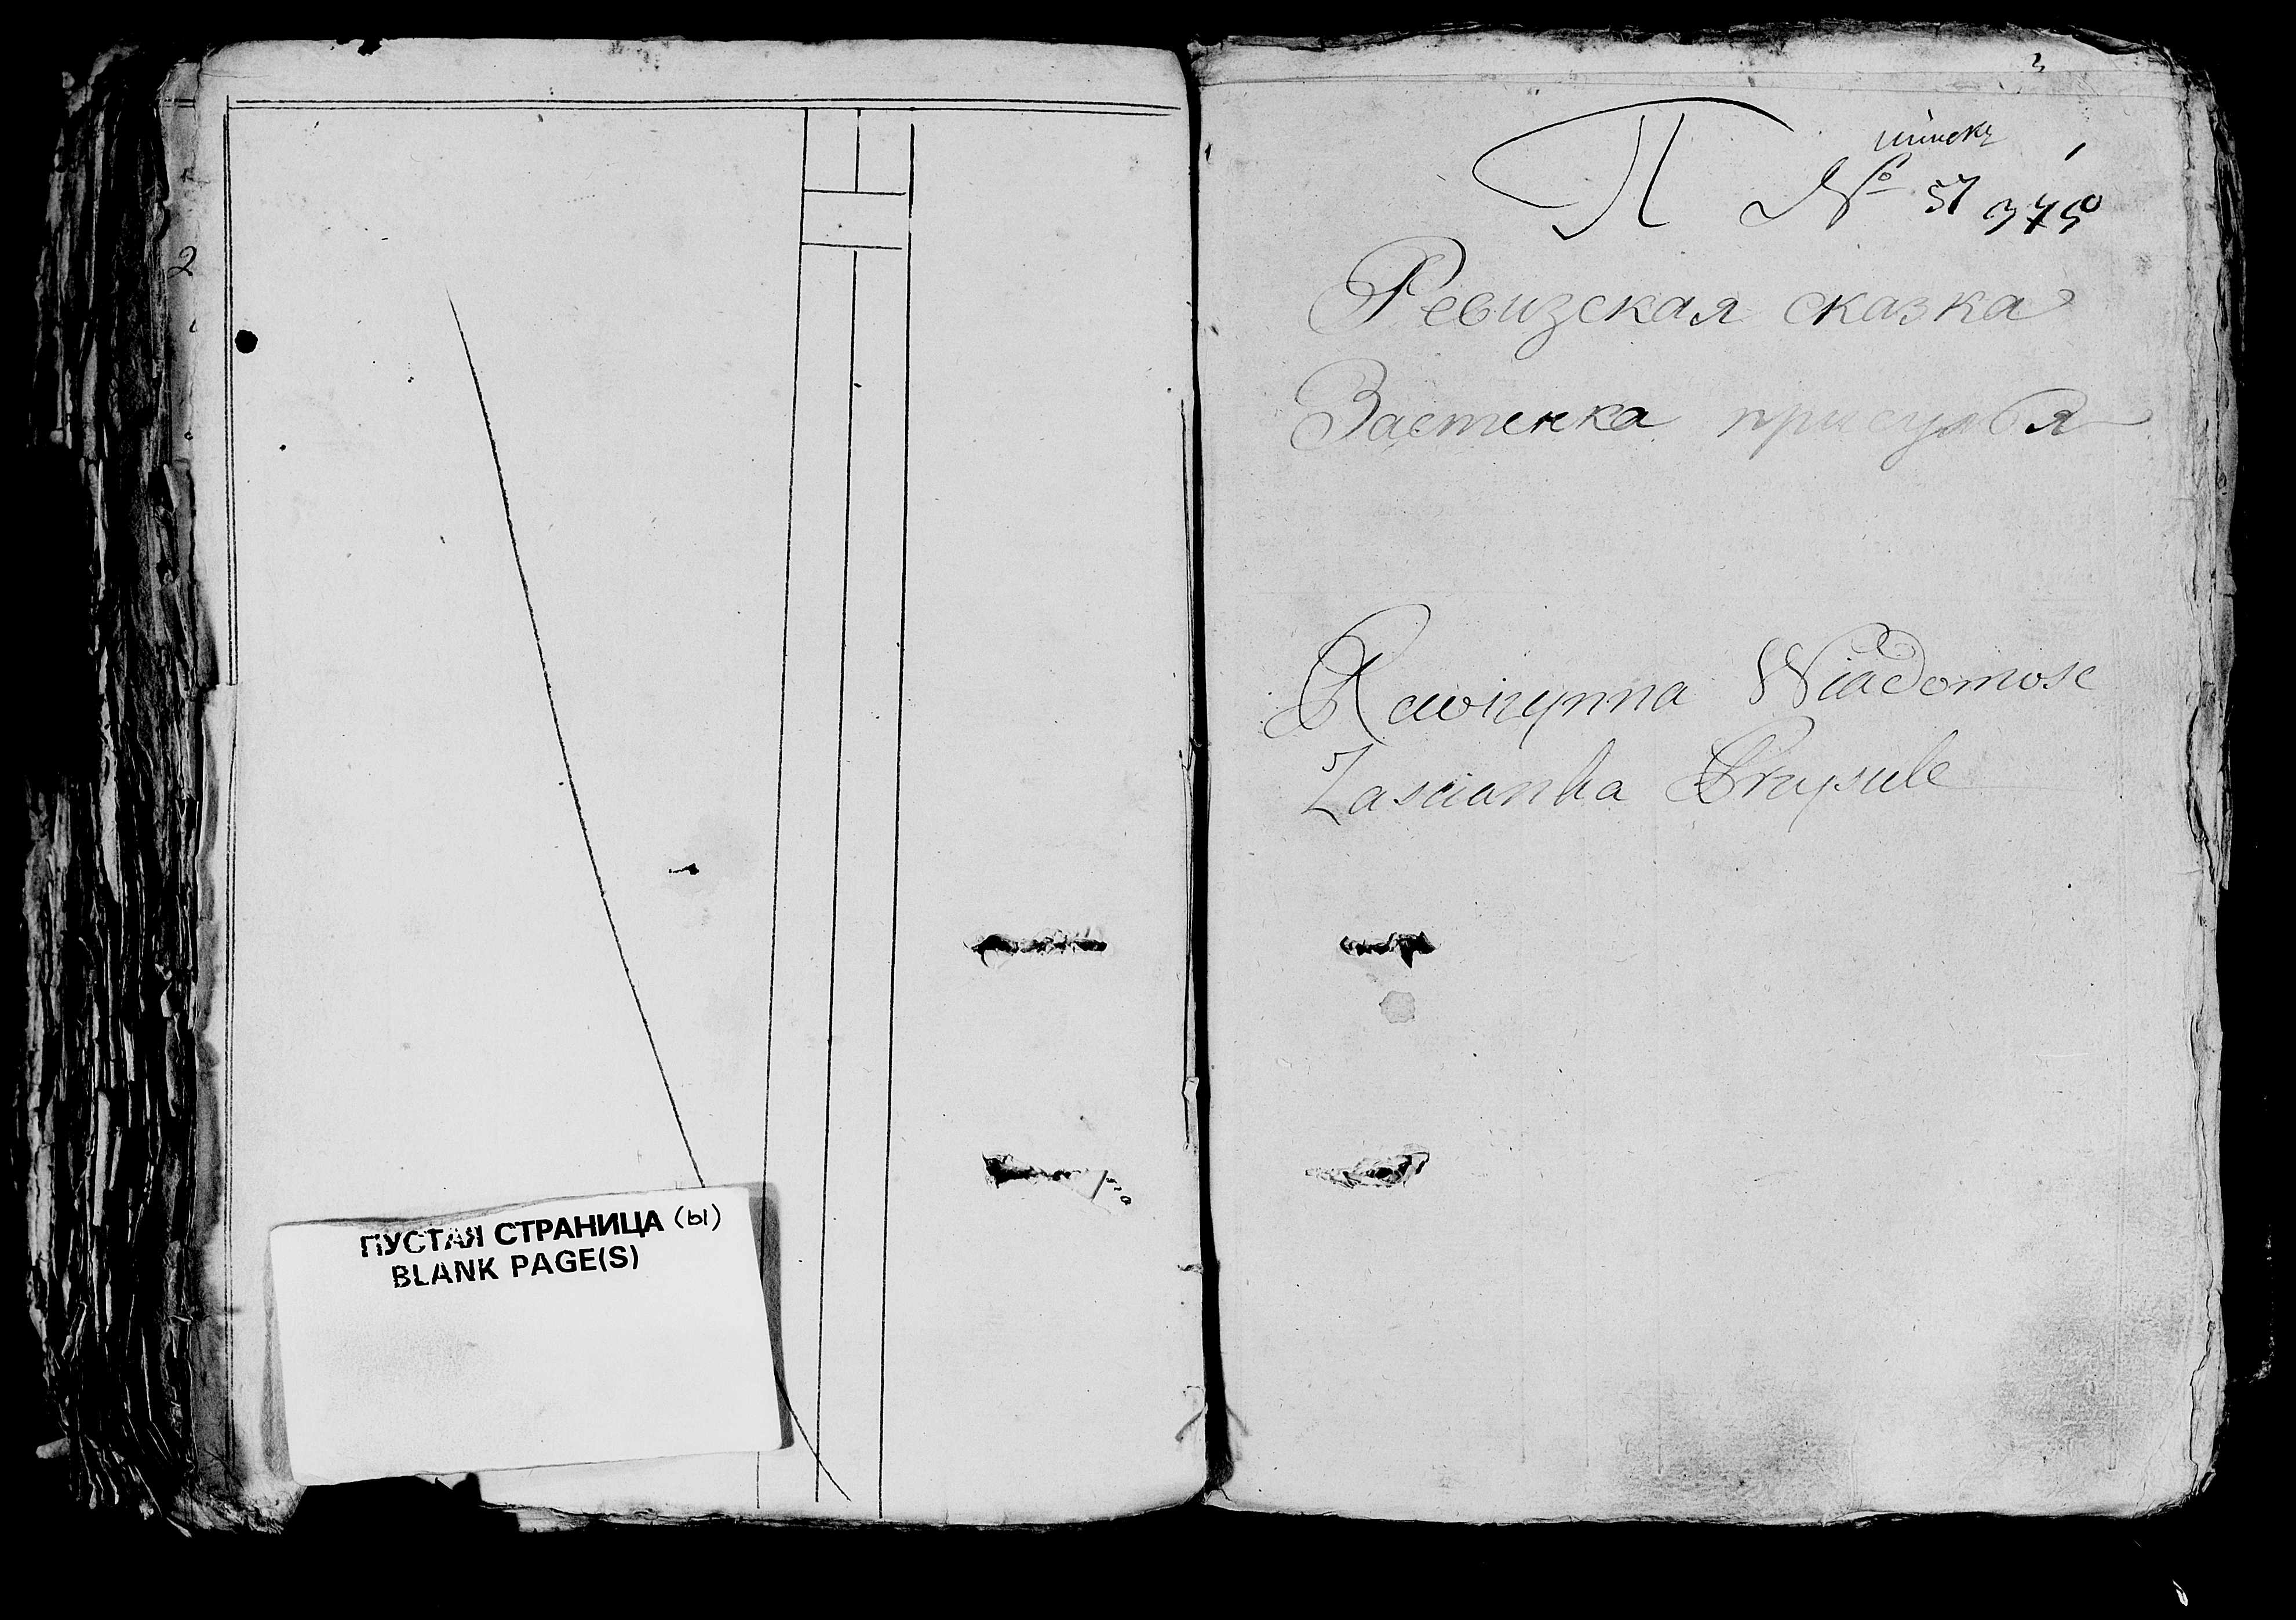 2
ПУСТАЯ СТРАНИЦА (Ы)
BLANK PAGE(S)
3
П
№ 57 375
Ревизская сказка
Застенка присуля
Rewizynna Wiadomosc
Zascianka Prysule